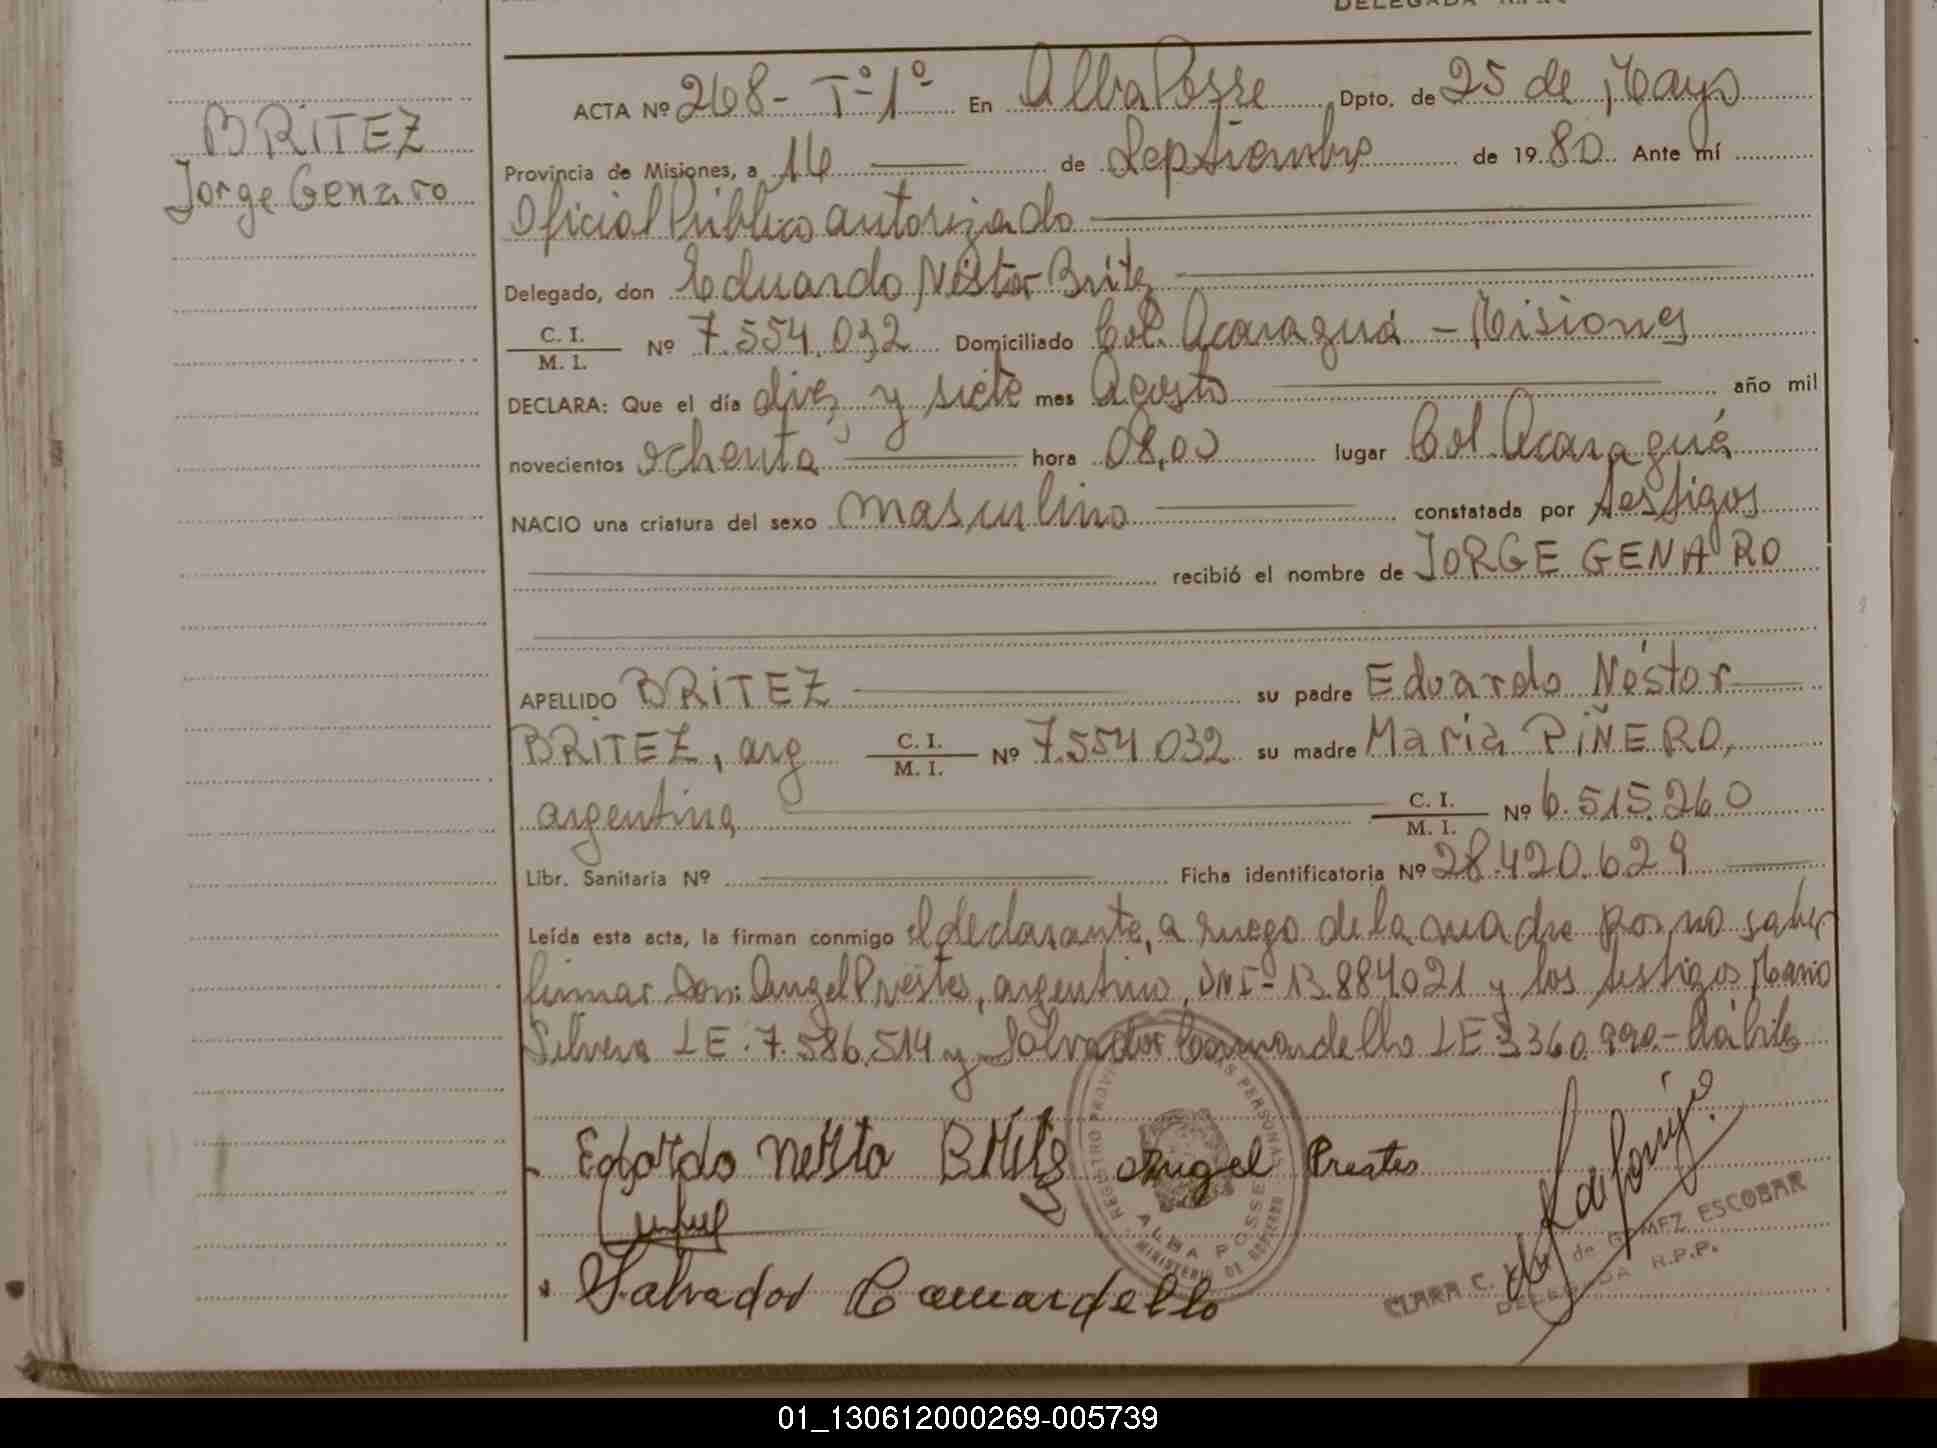 BRITEZ
Jorge Genaro
ACTA Nº 268- Tº1º En Alba Posse Dpto. de 25 de Mayo
Provincia de Misiones, a 16 de Septiembre de 1980 Ante mí
Oficial Público autorizado
Delegado, don Eduardo Néstor Britez
C. I.
M. I. Nº 7.554.032 Domiciliado Col. Acaraguá - Misiones
DECLARA: Que el día diez y siete mes Agosto año mil
novecientos ochenta hora 08,00 lugar Col. Acaraguá
NACIO una criatura del sexo masculino constatada por testigos
recibió el nombre de JORGE GENARO
APELLIDO BRITEZ su padre Eduardo Néstor
BRITEZ, arg C. I. M. I. Nº 7.554.032 su madre María PIÑERO,
argentina C. I. M. I. Nº 6.515.260
Libr. Sanitaria Nº Ficha identificatoria Nº 28.420.629
Leída esta acta, la firman conmigo el declarante, a ruego de la madre por no saber
firmar Don: Angel Prestes, argentino, DNI- 13.884.021 y los testigos Mario
Silvera LE. 7.586.514 y Salvador Camardello LE 3.360.990.- Hábiles
Edordo Nersto Britez Angel Prestes
Salvador Camardello
REGISTRO PROVINCIAL PERSONAS
ALBA POSSE
MINISTERIO DE GOBIERNO
CLARA C. de GOMEZ ESCOBAR
DELEGADA R.P.P.
01_130612000269-005739